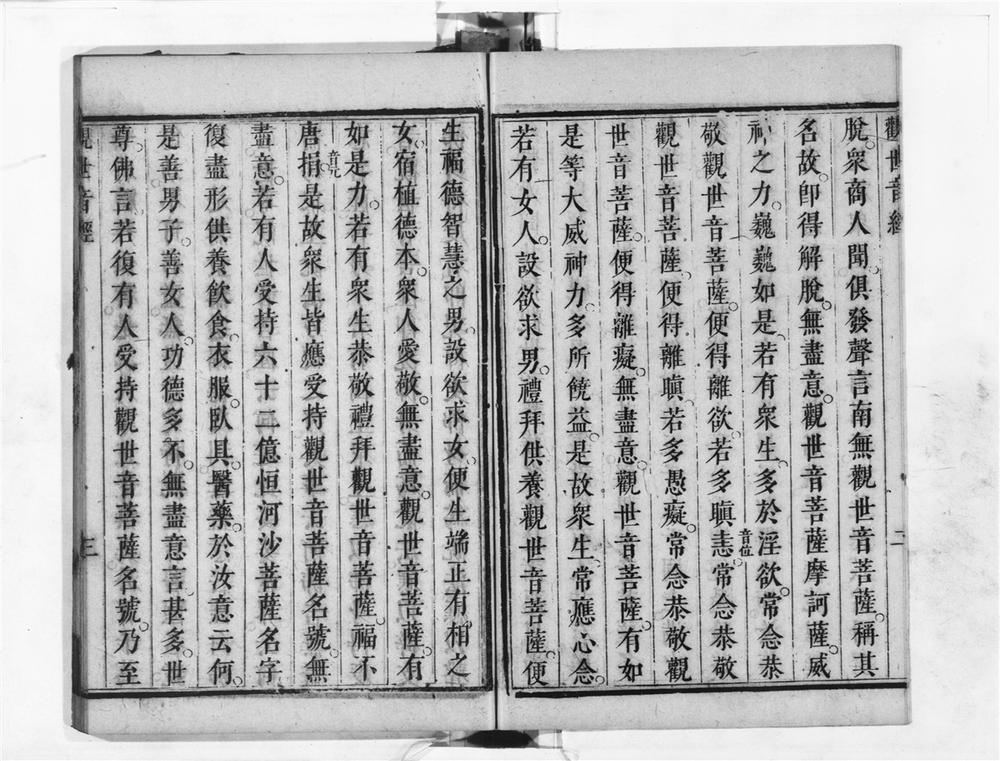 觀世音經 二
脫。衆商人聞。俱發聲言南無觀世音菩薩。稱其
名故。即得解脫。無盡意。觀世音菩薩摩訶薩。威
神之力。巍巍如是。若有衆生。多於淫欲。常念恭
敬觀世音菩薩。便得離欲。若多瞋恚音位常念恭敬
觀世音菩薩。便得離瞋。若多愚癡。常念恭敬觀
世音菩薩。便得離癡。無盡意。觀世音菩薩。有如
是等大威神力。多所饒益。是故衆生。常應心念。
若有女人。設欲求男。禮拜供養觀世音菩薩。便
生福德智慧之男。設欲求女。便生端正有相之
女。宿植德本。衆人愛敬。無盡意。觀世音菩薩。有
如是力。若有衆生恭敬禮拜觀世音菩薩。福不
唐捐。音元是故衆生皆應受持觀世音菩薩名號。無
盡意。若有人受持六十二億恒河沙菩薩名字
復盡形供養飲食。衣服臥具。醫藥於汝意云何。
是善男子。善女人。功德多不。無盡意言。甚多。世
尊。佛言若復有人受持觀世音菩薩名號。乃至
觀世音經 三